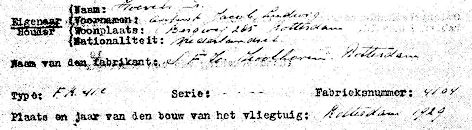 Naam: Hoeven
Eigenaar Voornamen: August Jacob Ludwig
Houder Woonplaats: Bergweg 265 Rotterdam
Nationaliteit: Nederlandsch
Naam van den fabrikant: Rotterdam
Type: F.K. 41 Serie: Fabrieksnummer: 4104
Plaats en jaar van den bouw van het vliegtuig: Rotterdam 1929